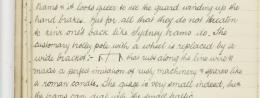 trams & it looks queer to see the guard winding up the
hand brakes. But for all that they do not threaten
to sink one's back like Sydney trams do. The
customary trolley pole with a wheel is replaced by a
wide bracket: that rubs along the line wire &
makes a perfect imitation of rusty machinery & sparks like
a roman candle. The gauge is very small indeed, but
the trams can deal with the small traffic